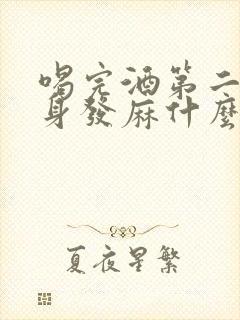 喝完酒第二
身發麻什麼
夏夜星繁